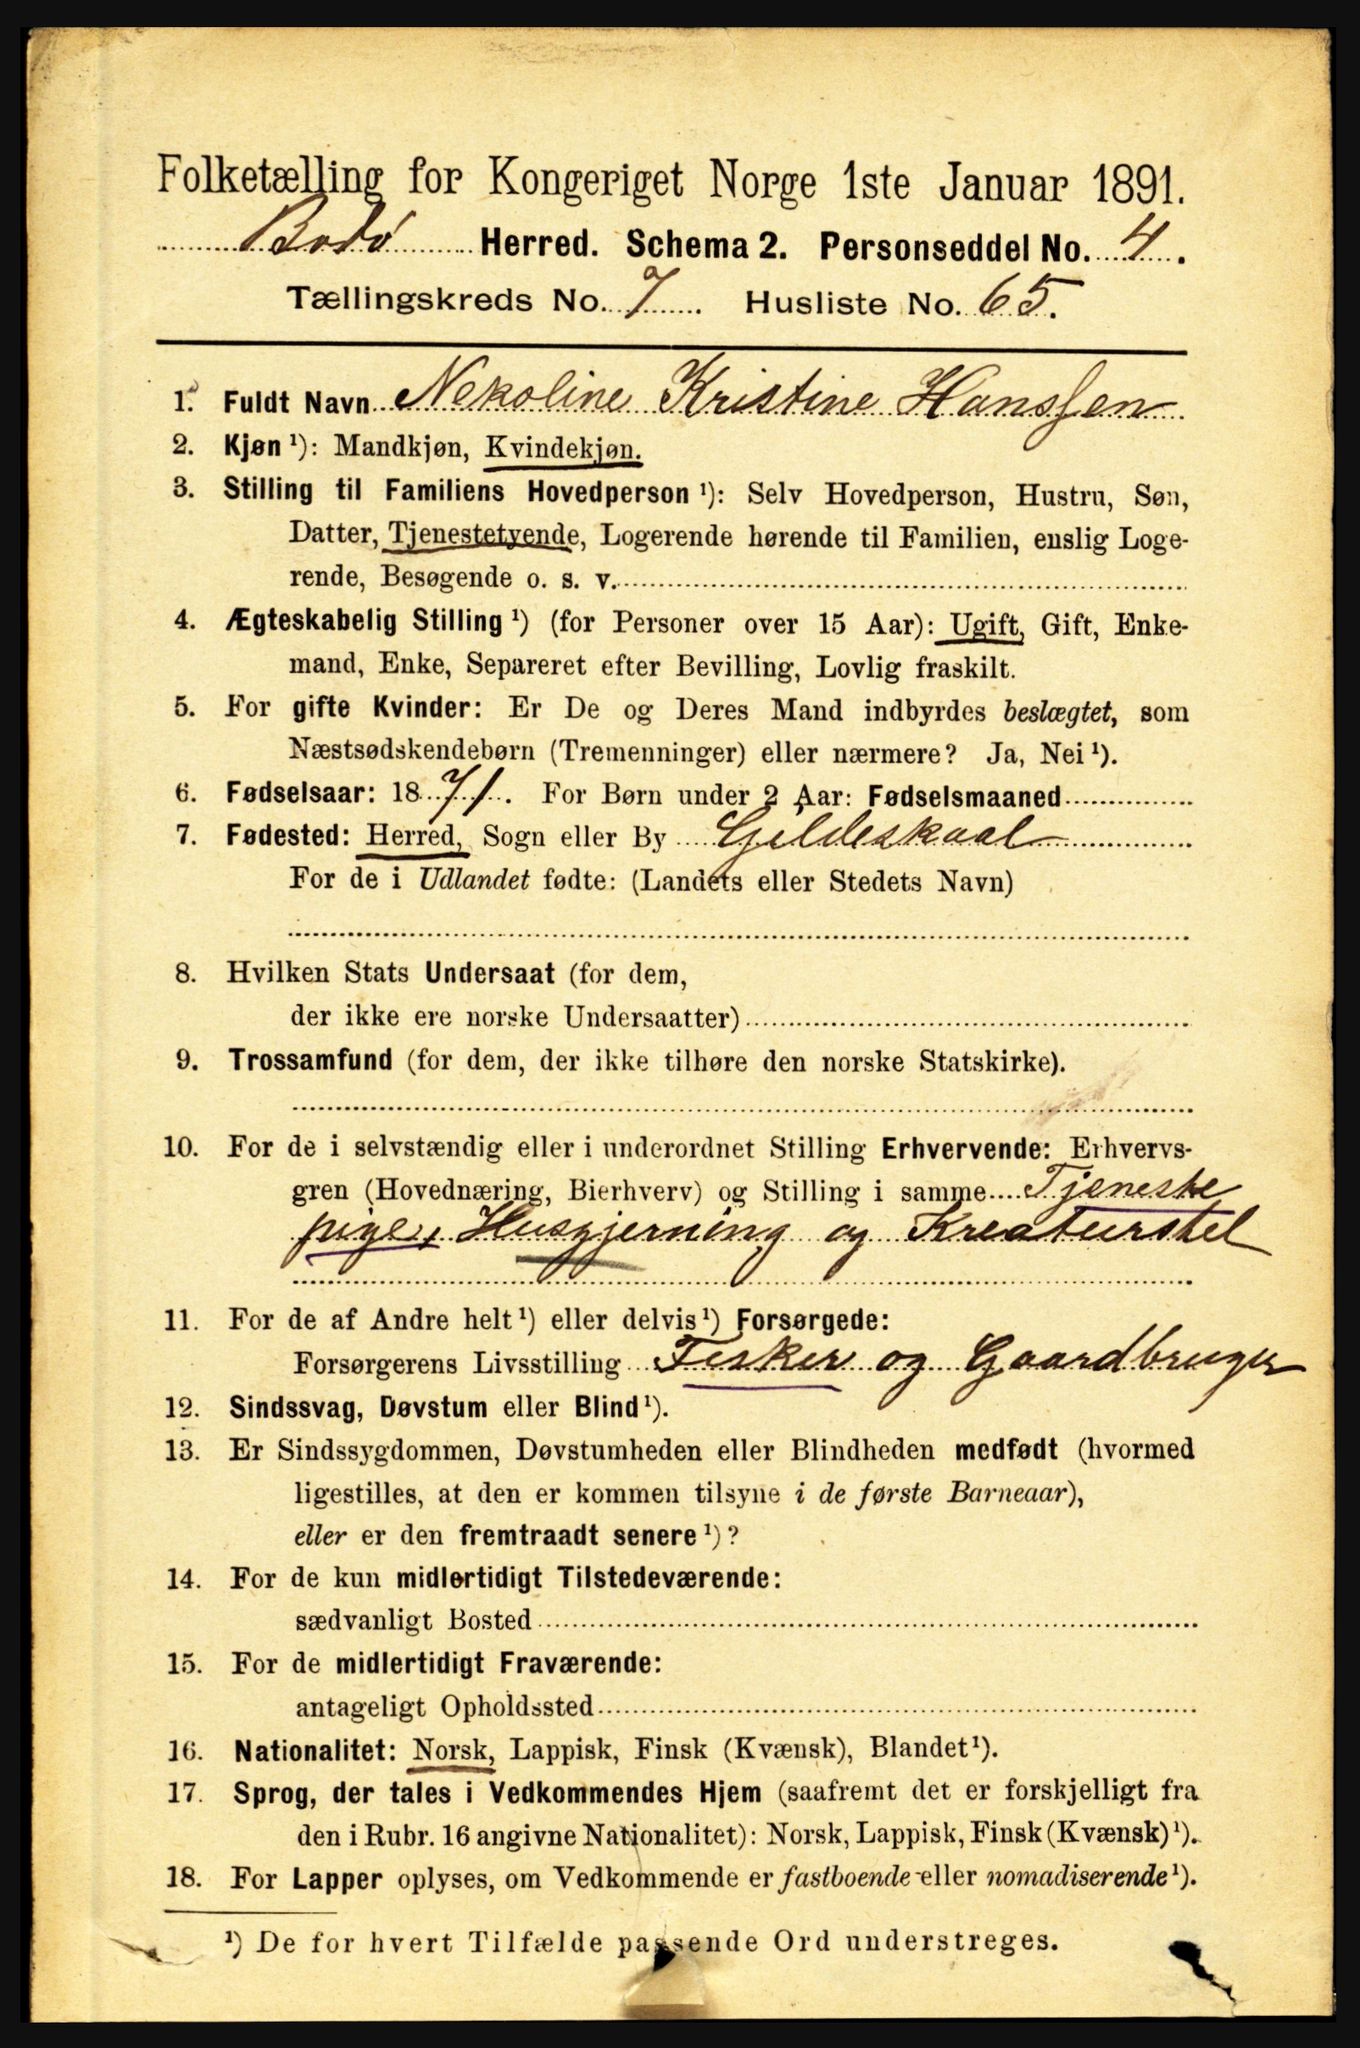 Folketælling for Kongeriget Norge 1ste Januar 1891.
Bodø Herred. Schema 2. Personseddel No. 4.
Tællingskreds No. 7 Husliste No. 65.
1. Fuldt Navn Nekoline Kristine Hanssen
2. Kjøn ¹): Mandkjøn, Kvindekjøn.
3. Stilling til Familiens Hovedperson ¹): Selv Hovedperson, Hustru, Søn,
Datter, Tjenestetyende, Logerende hørende til Familien, enslig Loge-
rende, Besøgende o. s. v.
4. Ægteskabelig Stilling ¹) (for Personer over 15 Aar): Ugift, Gift, Enke-
mand, Enke, Separeret efter Bevilling, Lovlig fraskilt.
5. For gifte Kvinder: Er De og Deres Mand indbyrdes beslægtet, som
Næstsødskendebørn (Tremenninger) eller nærmere? Ja, Nei ¹).
6. Fødselsaar: 1871. For Børn under 2 Aar: Fødselsmaaned
7. Fødested: Herred, Sogn eller By Gildeskaal
For de i Udlandet fødte: (Landets eller Stedets Navn)
8. Hvilken Stats Undersaat (for dem,
der ikke ere norske Undersaatter)
9. Trossamfund (for dem, der ikke tilhøre den norske Statskirke).
10. For de i selvstændig eller i underordnet Stilling Erhvervende: Erhvervs-
gren (Hovednæring, Bierhverv) og Stilling i samme Tjeneste
pige, Husgjerning og Kreaturstel
11. For de af Andre helt ¹) eller delvis ¹) Forsørgede:
Forsørgerens Livsstilling Fisker og Gaardbruger
12. Sindssvag, Døvstum eller Blind ¹).
13. Er Sindssygdommen, Døvstumheden eller Blindheden medfødt (hvormed
ligestilles, at den er kommen tilsyne i de første Barneaar),
eller er den fremtraadt senere ¹)?
14. For de kun midlertidigt Tilstedeværende:
sædvanligt Bosted
15. For de midlertidigt Fraværende:
antageligt Opholdssted
16. Nationalitet: Norsk, Lappisk, Finsk (Kvænsk), Blandet ¹).
17. Sprog, der tales i Vedkommendes Hjem (saafremt det er forskjelligt fra
den i Rubr. 16 angivne Nationalitet): Norsk, Lappisk, Finsk (Kvænsk) ¹).
18. For Lapper oplyses, om Vedkommende er fastboende eller nomadiserende ¹).
¹) De for hvert Tilfælde passende Ord understreges.